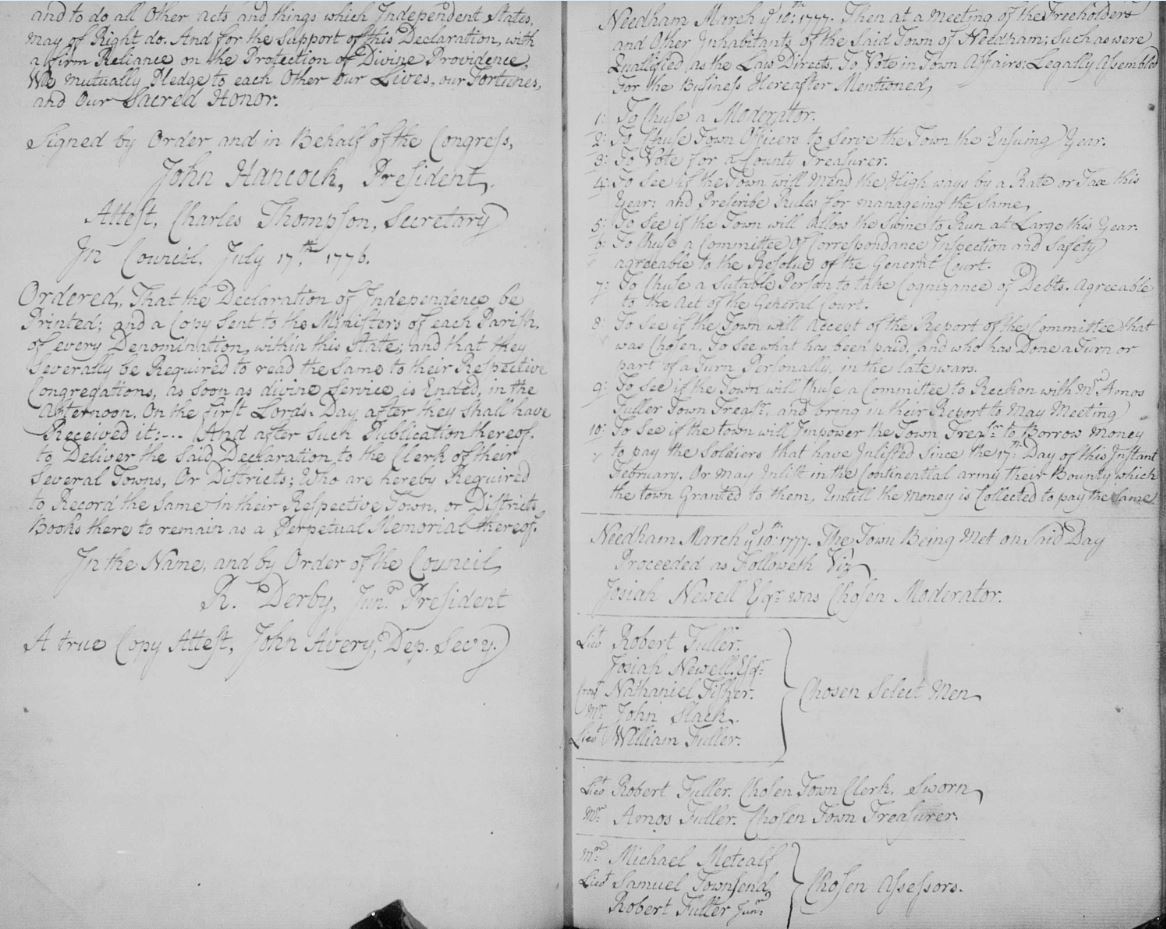 and to do all Other acts and things which Independent States,
may of Right do. And for the Support of this Declaration, with
a firm Reliance on the Protection of Divine Providence,
We mutually Pledge to each Other our Lives, our Fortunes,
and Our Sacred Honor.
Signed by Order and in Behalf of the Congress,
John Hancock, President,
Attest, Charles Thompson, Secretary
In Council, July 17th 1776.
Ordered, That the Declaration of Independence be
Printed; and a Copy Sent to the Ministers of each Parish,
of every Denomination, within this State; and that they
Severally be Required to read the Same to their Respective
Congregations, as soon as divine Service is Ended, in the
Afternoon, On the first Lords-Day after they Shall have
Received it:--- And after Such Publication thereof,
to Deliver the Said Declaration to the Clerk of their
Several Towns, Or Districts; Who are hereby Required
to Record the Same in their Respective Town, or District
Books there to remain as a Perpetual Memorial thereof.
In the Name, and by Order of the Council,
R. Derby, Junr. President
A true Copy Attest, John Avery, Dep. Secy.
Needham March ye 10th: 1777. Then at a Meeting of the Freeholders
and Other Inhabitants of the Said Town of Needham; Such as were
Qualified as the Law Directs, To Vote in Town Affairs: Legally Assembled
For the Business Hereafter Mentioned,
1: To Chuse a Moderator.
2: To Chuse Town Officers to Serve the Town the Ensuing Year.
3: To Vote for a County Treasurer.
4: To See if the Town will Mend the High ways by a Rate or Tax this
Year; and Prescribe Rules for manageing the Same,
5: To See if the Town will allow the Swine to Run at Large this Year.
6: To Chuse a Committee of Correspondance Inspection and Safety
agreeable to the Resolve of the General Court.
7: To Chuse a Sutable Person to take Cognizance of Debts. Agreeable
to the Act of the General Court.
8: To See if the Town will accept of the Report of the Committee that
was Chosen, To See what has been paid, and who has Done a Turn or
part of a Turn Personally, in the late wars.
9: To See if the Town will Chuse a Committee to Reckon with Mr. Amos
Fuller Town Treasr. and bring in their Report to May Meeting
10: To See if the town will Impower the Town Treasr. to Borrow Money
to pay the Soldiers that have Inlisted Since the 17th Day of this Instant
February. Or may Inlist in the Continental army their Bounty which
the town Granted to them, Untill the Money is Collected to pay the Same
Needham March ye 10th: 1777. The Town Being Met on Said Day
Proceeded as Followeth Viz
Josiah Newell Esqr. was Chosen Moderator.
Lieut Robert Fuller.
Josiah Newell. Esqr.
Nathaniel Fisher.
Mr. John Slack.
Lieut William Fuller.
Chosen Select Men
Lieut Robert Fuller. Chosen Town Clerk, Sworn
Mr. Amos Fuller. Chosen Town Treasurer.
Mr. Michael Metcalf
Lieut Samuel Townsend
Robert Fuller Junr.
Chosen Assessors.